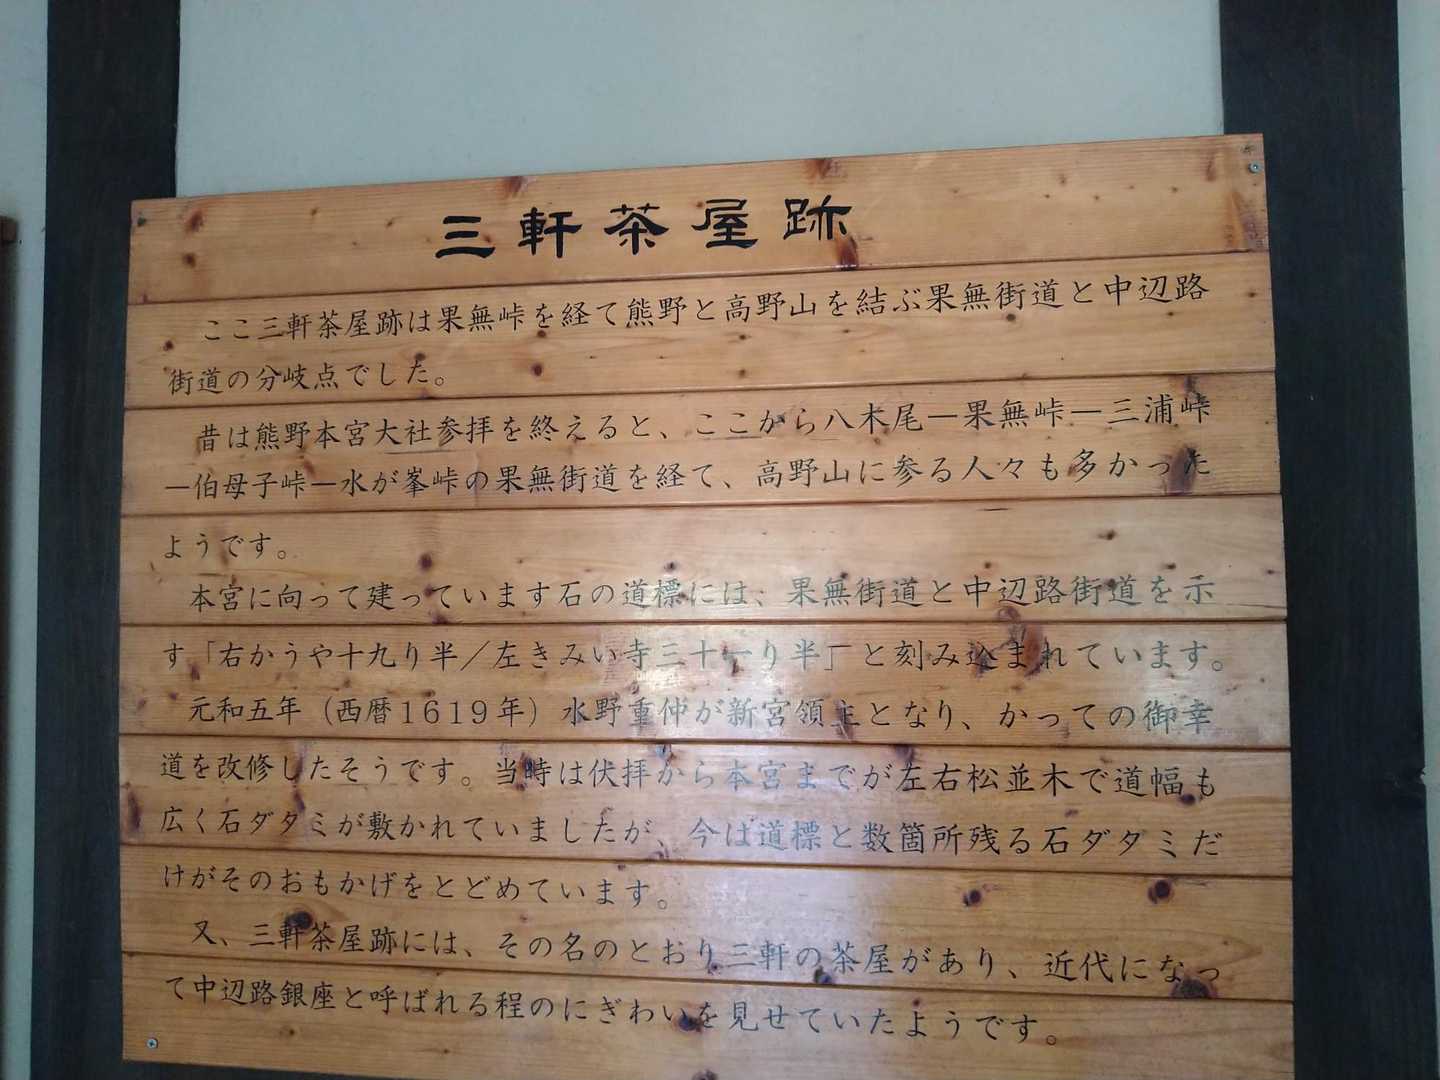 三軒茶屋跡
ここ三軒茶屋跡は果無峠を経て熊野と高野山を結ぶ果無街道と中辺路
街道の分岐点でした。
昔は熊野本宮大社参拝を終えると、ここから八木尾ー果無峠ー三浦峠
ー伯母子峠ー水が峯峠の果無街道を経て、高野山に参る人々も多かった
ようです。
本宮に向って建っています石の道標には、果無街道と中辺路街道を示
す「右かうや十九り半／左きみい寺三十一り半」と刻み込まれています。
元和五年（西暦1619年）水野重仲が新宮領主となり、かっての御幸
道を改修したそうです。当時は伏拝から本宮までが左右松並木で道幅も
広く石ダタミが敷かれていましたが、今は道標と数箇所残る石ダタミだ
けがそのおもかげをとどめています。
又、三軒茶屋跡には、その名のとおり三軒の茶屋があり、近代になっ
て中辺路銀座と呼ばれる程のにぎわいを見せていたようです。